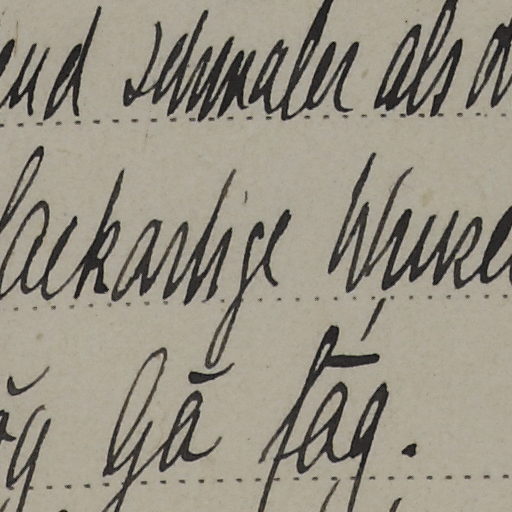 end schmaler als d
lackartige Winkel
ög Gā fāg.